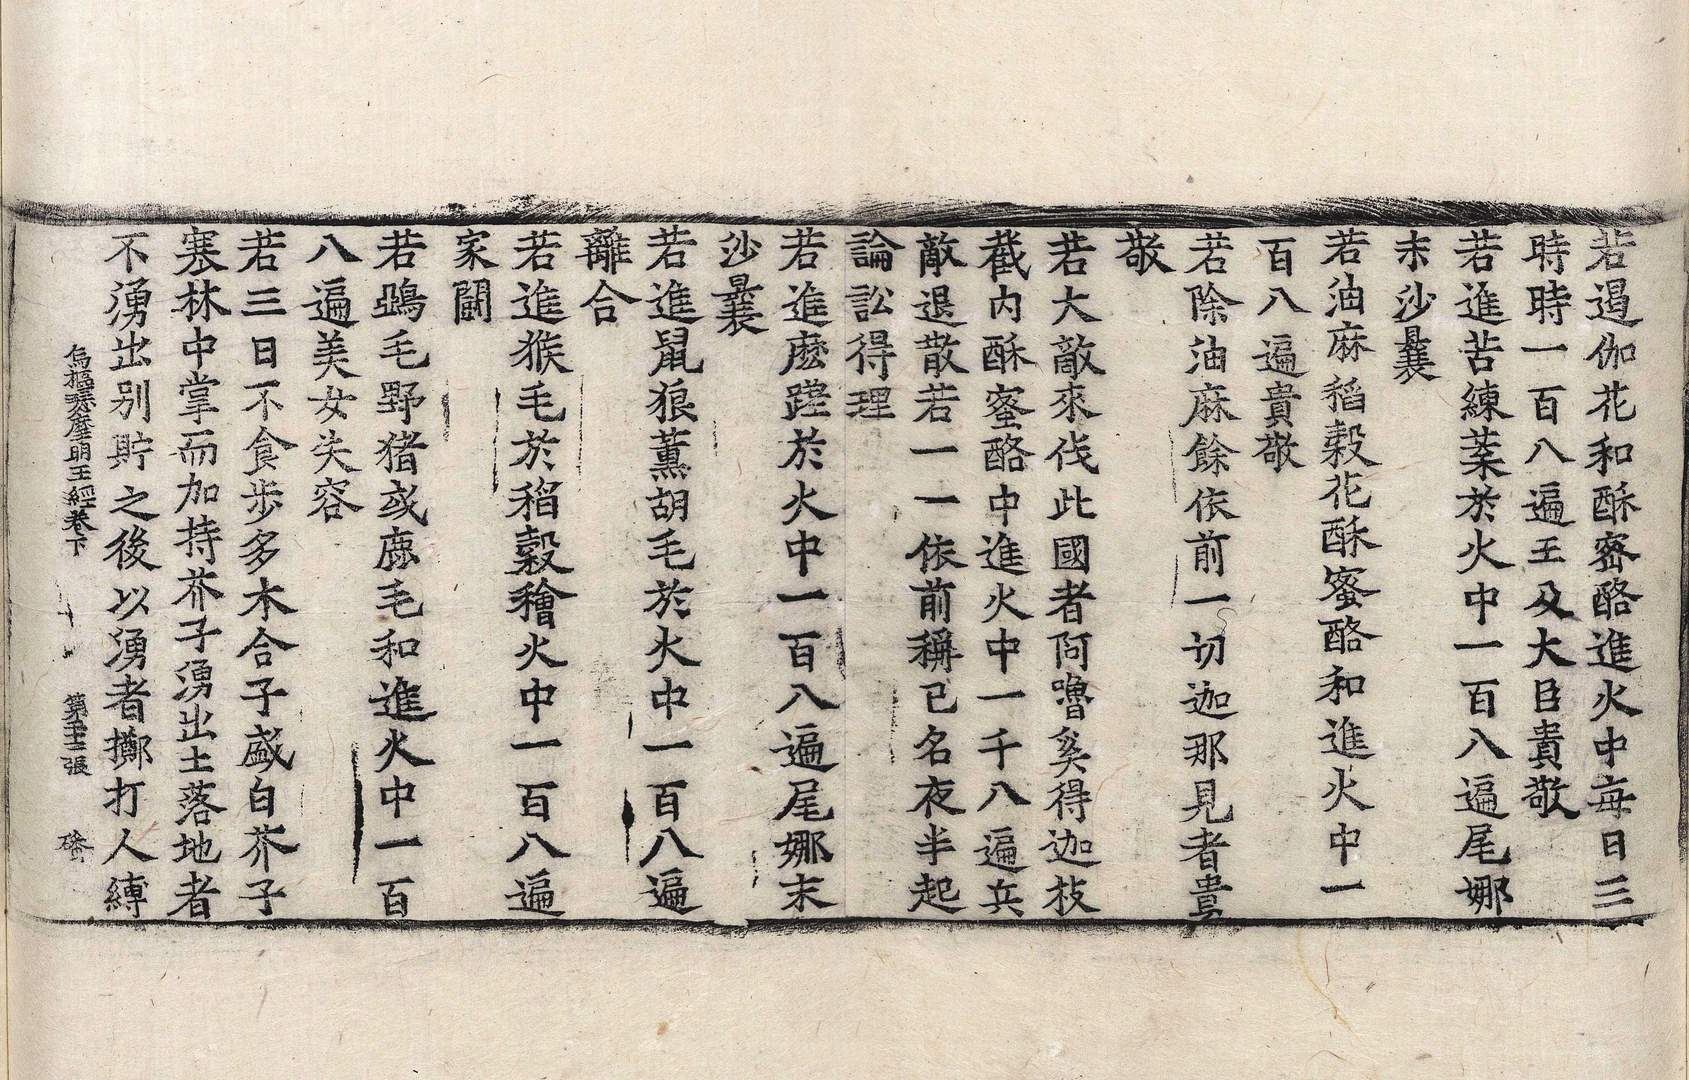 若遏伽花和酥蜜酪進火中每日三
時時一百八遍王及大臣貴敬
若進苦練葉於火中一百八遍尾娜
末沙曩
若油麻稻穀花酥蜜酪和進火中一
百八遍貴敬
若除油麻餘依前一切迦那見者貴
敬
若大敵來伐此國者阿嚕奚得迦枝
截內酥蜜酪中進火中一千八遍兵
敵退散若一一依前稱已名夜半起
論訟得理
若進麼蹉於火中一百八遍尾娜末
沙曩
若進鼠狼薰胡毛於火中一百八遍
離合
若進猴毛於稻穀䅨火中一百八遍
家鬪
若鵶毛野猪或鹿毛和進火中一百
八遍美女失容
若三日不食步多木合子盛白芥子
塞林中掌而加持芥子湧出土落地者
不湧出別貯之後以湧者擲打人縛
烏樞瑟摩明王經卷下 第 張